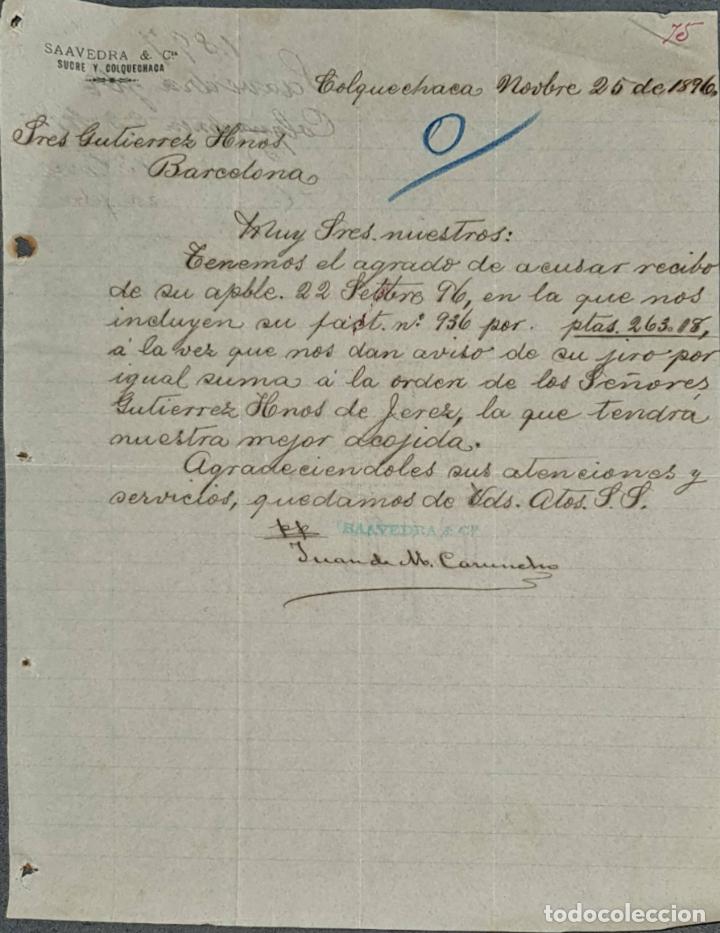 75
SAAVEDRA & Cía
SUCRE Y COLQUECHACA
Colquechaca Novbre 25 de 1896,
Sres Gutierrez Hnos.
Barcelona
0
Muy Sres. nuestros:
Tenemos el agrado de acusar recibo
de su apble. 22 Setbre 96, en la que nos
incluyen su fact. nº 936 por. ptas. 263.08,
á la vez que nos dan aviso de su jiro por
igual suma á la orden de los Señores
Gutierrez Hnos de Jerez, la que tendrá
nuestra mejor acojida.
Agradeciendoles sus atenciones y
servicios, quedamos de Vds. Atos. S. S.
pp SAAVEDRA & Cª
Juan de M. Caruncho
todocoleccion
todocoleccion.net